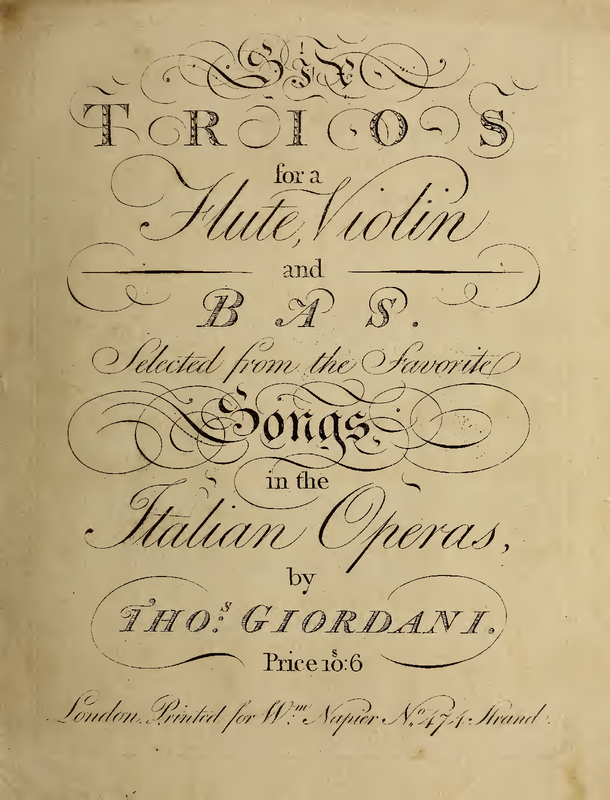 Six
TRIOS
for a
Flute, Violin
and
BAS.
Selected from the Favorite
Songs,
in the
Italian Operas,
by
THO.s GIORDANI.
Price 10s:6
London. Printed for Wm. Napier No. 474 Strand.